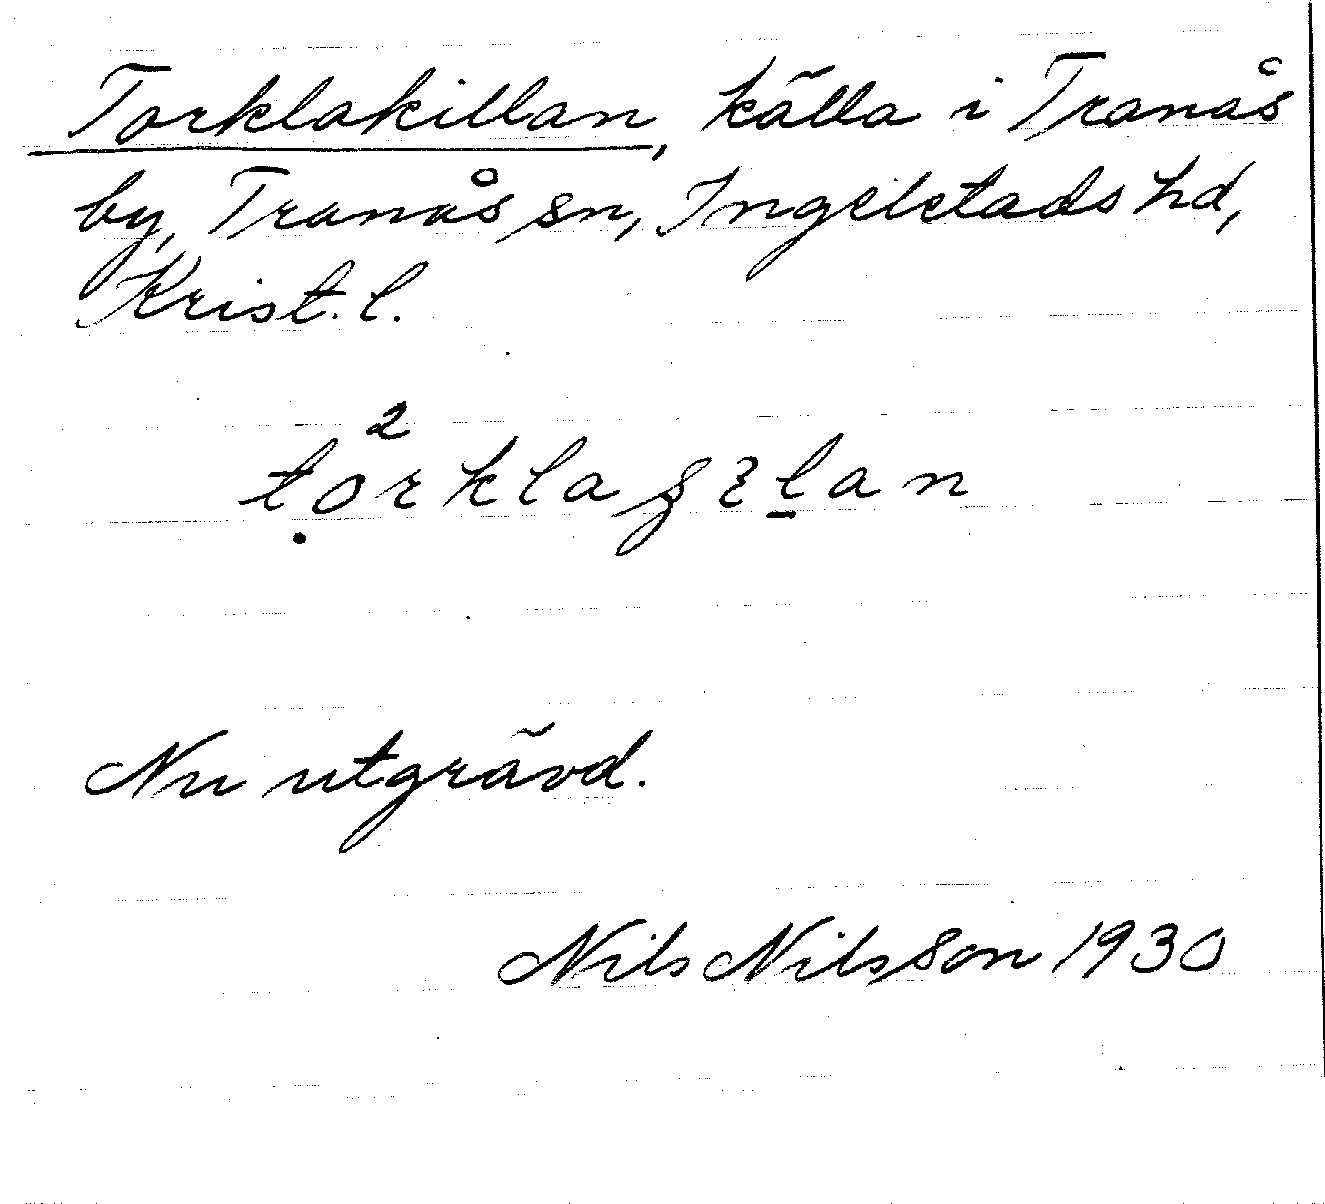 Torklakillan, källa i Tranås
by, Tranås sn, Ingelstads hd,
Krist. l.
Nu utgrävd.
Nils Nilsson 1930